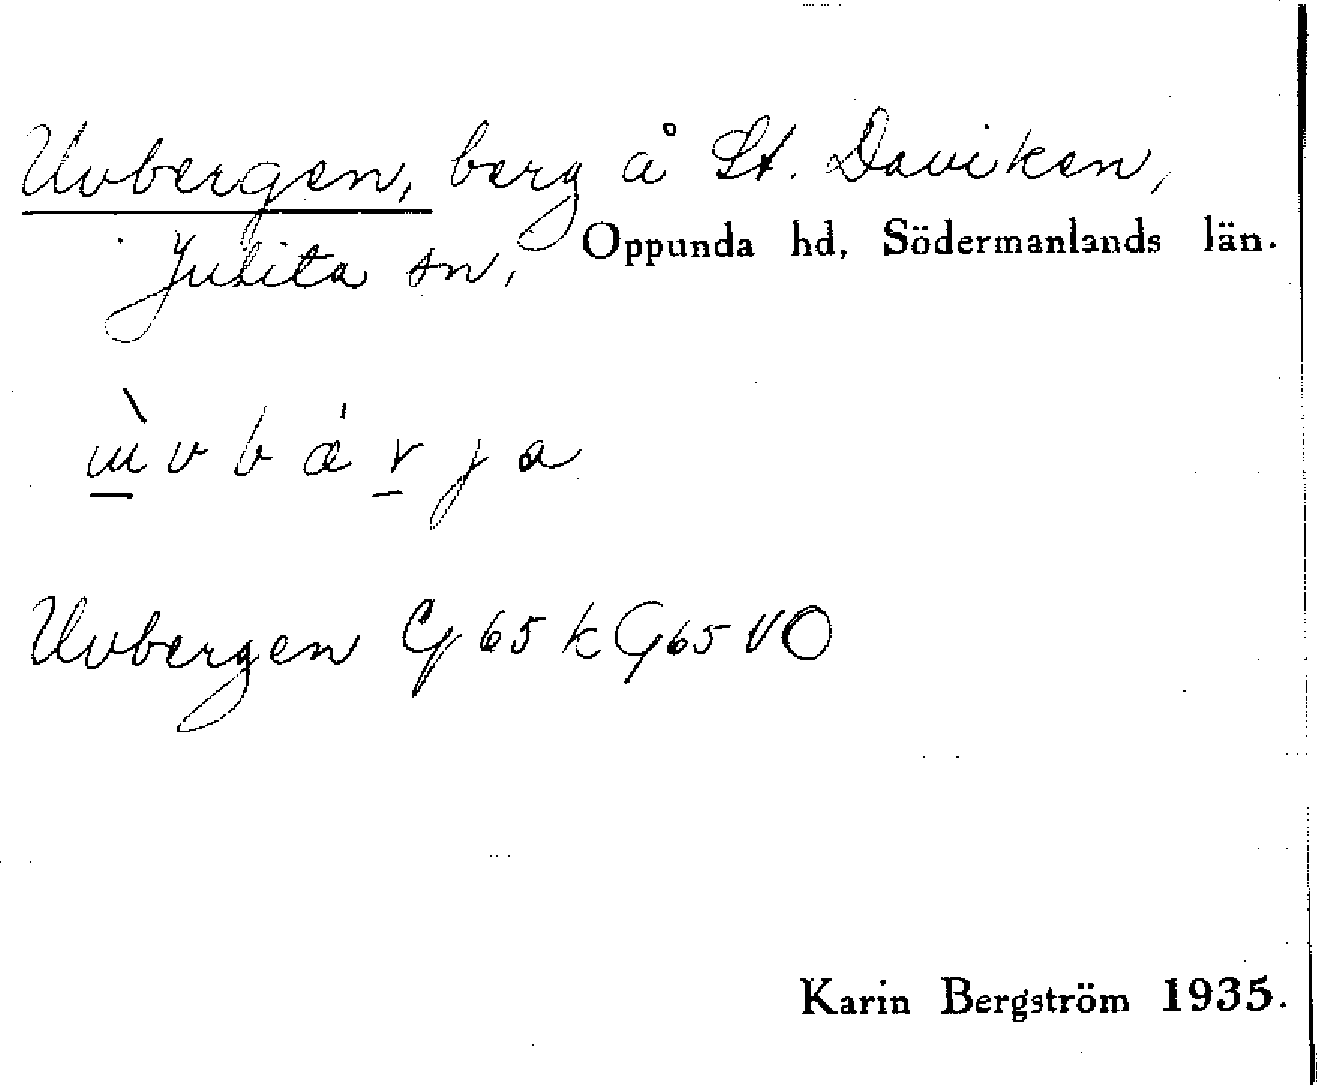 Uvbergen, berg å St. Daviken,
Julita sn, Oppunda hd, Södermanlands län.
Uvbergen G 65 k G 65 VO
Karin Bergström 1935.